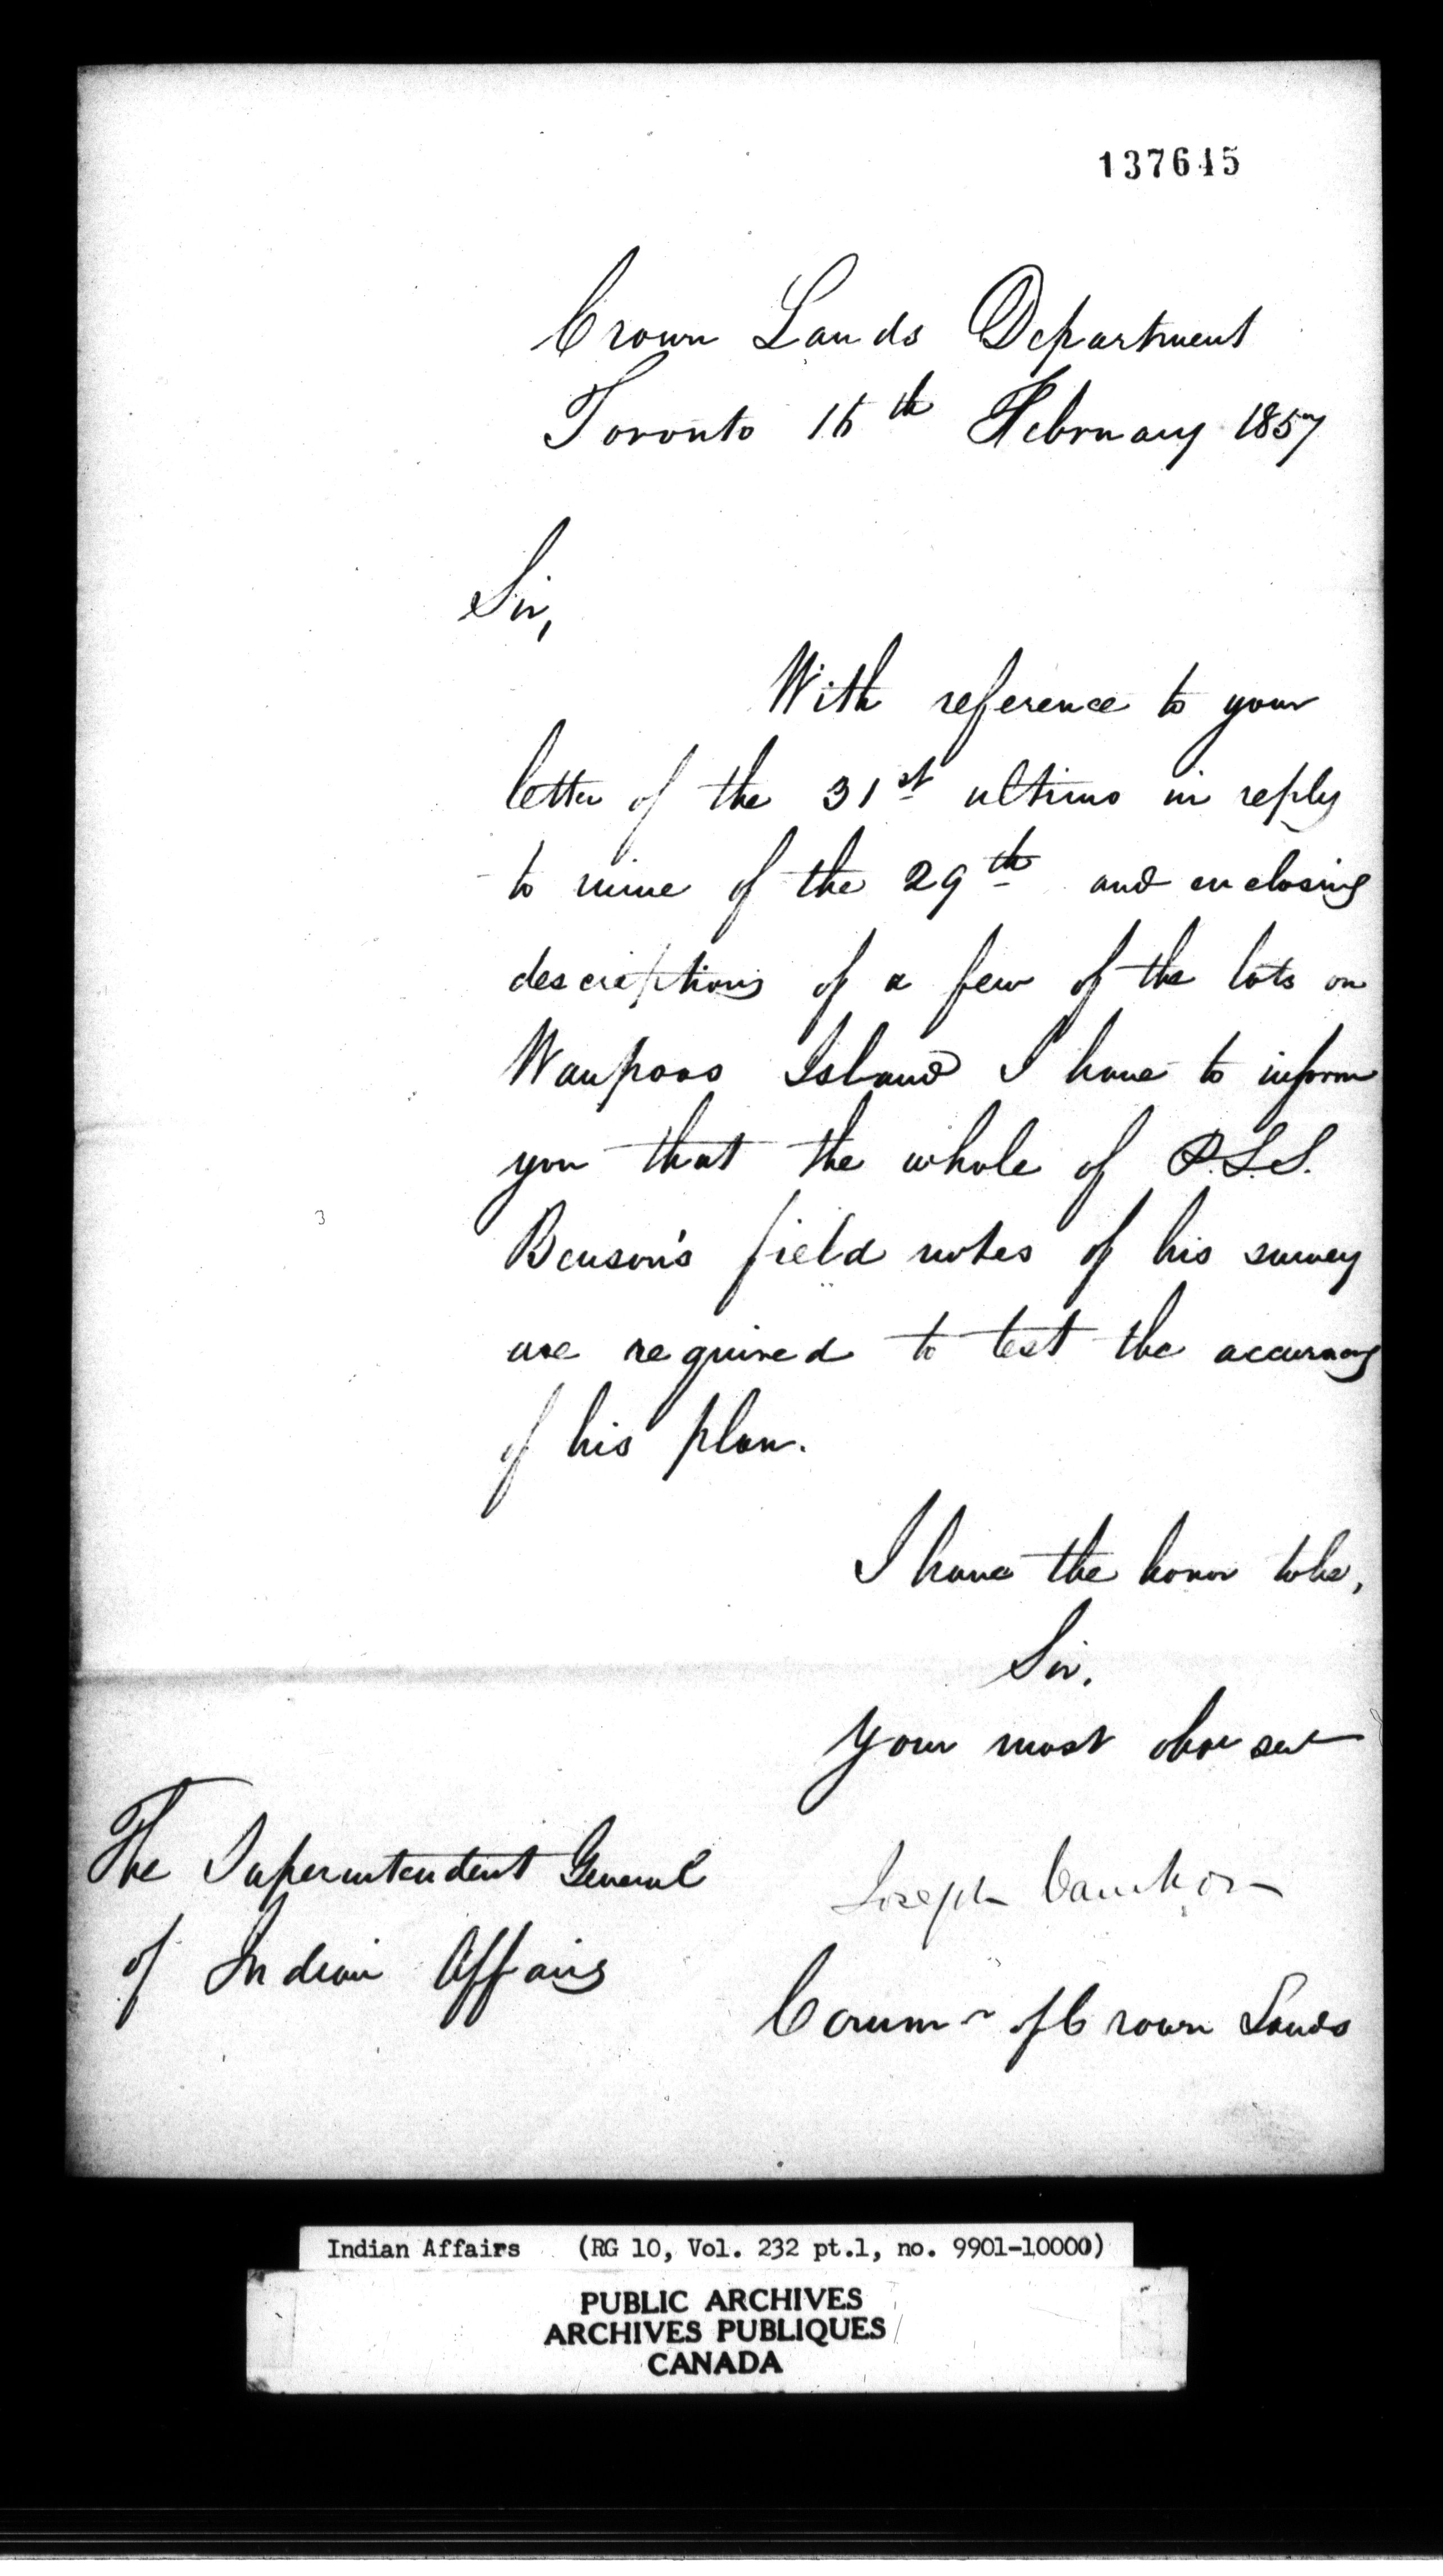 137645
Crown Lands Department
Toronto 16th February 1857
Sir,
With reference to your
letter of the 31st ultimo in reply
to mine of the 29th and enclosing
descriptions of a few of the lots on
Waupoos Island I have to inform
you that the whole of P.L.S.
Benson's field notes of his survey
are required to test the accuracy
of his plan.
I have the honor to be,
Sir,
Your most obdt servt
The Superintendent General
Joseph Cauchon
of Indian Affairs
Commr of Crown Lands
Indian Affairs (RG 10, Vol. 232 pt.1, no. 9901-10000)
PUBLIC ARCHIVES
ARCHIVES PUBLIQUES
CANADA